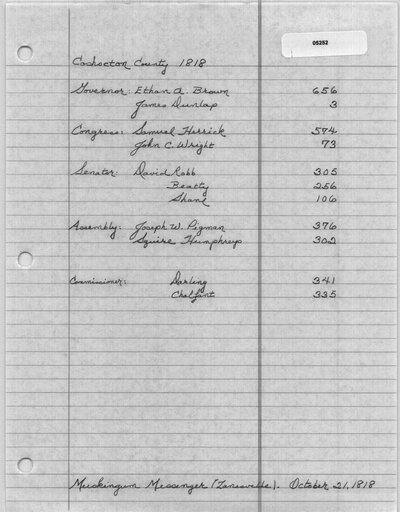 05252
Coshocton County 1818
Governor: Ethan A. Brown 656
James Dunlap 3
Congress: Samuel Herrick 574
John C. Wright 73
Senator: David Robb 305
Beatty 256
Shane 106
Assembly: Joseph W. Pigman 376
Squire Humphreys 302
Commissioner: Darling 341
Chalfant 335
Muskingum Messenger (Zanesville). October 21, 1818